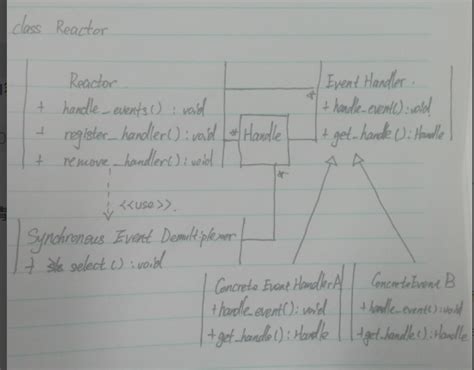 class Reactor
Reactor
+ handle_events() : void
+ register_handler() : void
+ remove_handler() : void
*
Handle
Event Handler
+ handle_event() : void
+ get_handle() : Handle
<<use>>
*
Synchronous Event Demultiplexer
+ select() : void
Concrete Event Handler A
+ handle_event() : void
+ get_handle() : Handle
Concrete Event B
+ handle_event() : void
+ get_handle() : Handle